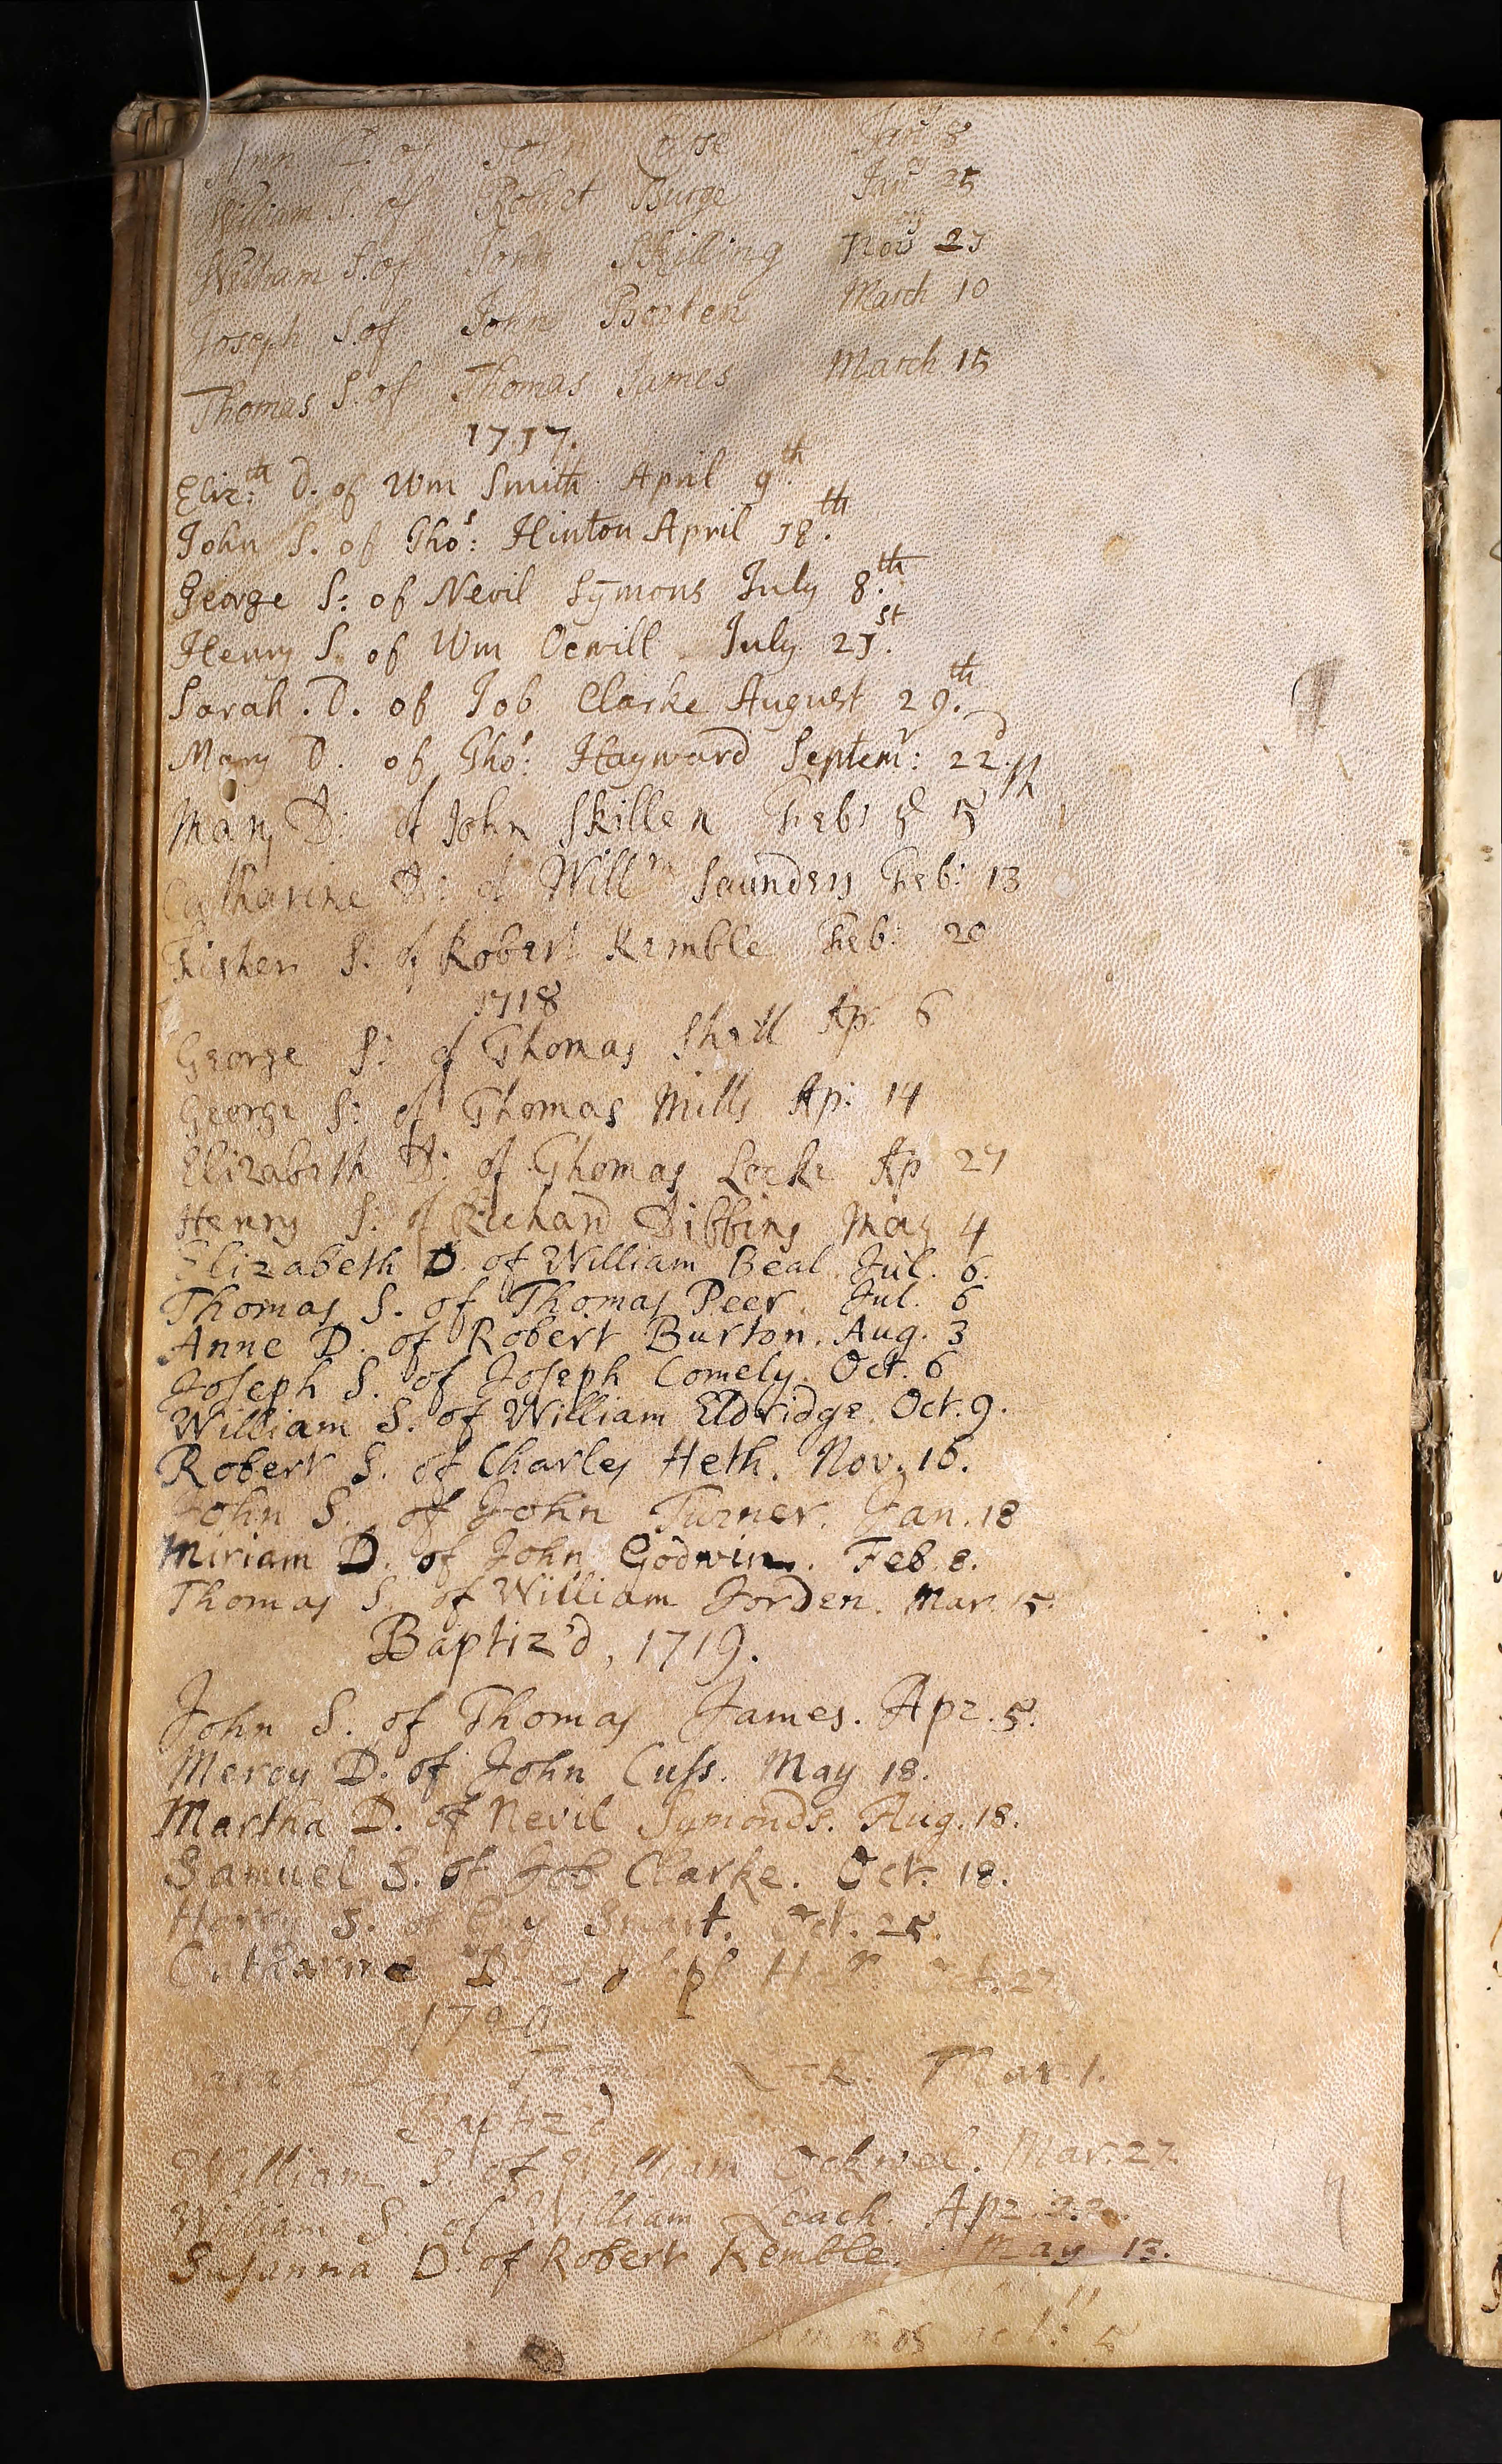 Ann D. of John Janry 8
William S. of Robert Burge Janry 25
William S. of John Skilling Novr 27
Joseph S. of John Borten March 10
Thomas S. of Thomas James March 15
1717.
Eliz:th D. of Wm Smith April 9th.
John S. of Thos: Hinton April 18th.
George S: of Nevil Symons July 8th.
Henry S. of Wm Ocwill July 21st.
Sarah. D. of Job Clarke August 29th.
Mary D. of Thos: Hayward Septemr: 22d.
Mary D: of John Skillen Feb: 5th
Catharine D: of Willm Saunders Feb: 13
Fisher S: of Robert Kemble Feb: 20
1718
George S: of Thomas Shell Ap: 6
George S: of Thomas Mills Ap: 14
Elizabeth D: of Thomas Locke Ap 27
Henry S: of Richard Dibbins May 4
Elizabeth D. of William Beal. Jul. 6.
Thomas S. of Thomas Peer. Jul. 6
Anne D. of Robert Burton. Aug. 3
Joseph S. of Joseph Comely. Oct. 6
William S. of William Eldridge. Oct. 9.
Robert S. of Charles Heth. Nov. 16.
John S. of John Turner. Jan. 18
Miriam D. of John Godwin. Feb. 8.
Thomas S. of William Jorden. Mar. 15.
Baptiz'd, 1719.
John S. of Thomas James. Apr. 5.
Mercy D. of John Cuss. May 18.
Martha D. of Nevil Symonds. Aug. 18.
Samuel S. of Job Clarke. Oct. 18.
S. of Guy Smart. Oct. 25.
Catharine D. Joseph Oct. 27
1720
Sarah D. Mar. 1.
Baptiz'd
William S. of William Ockwel. Mar. 27.
William S. of William Leach. Apr. 22.
Susanna D. of Robert Kemble. May 13.
11